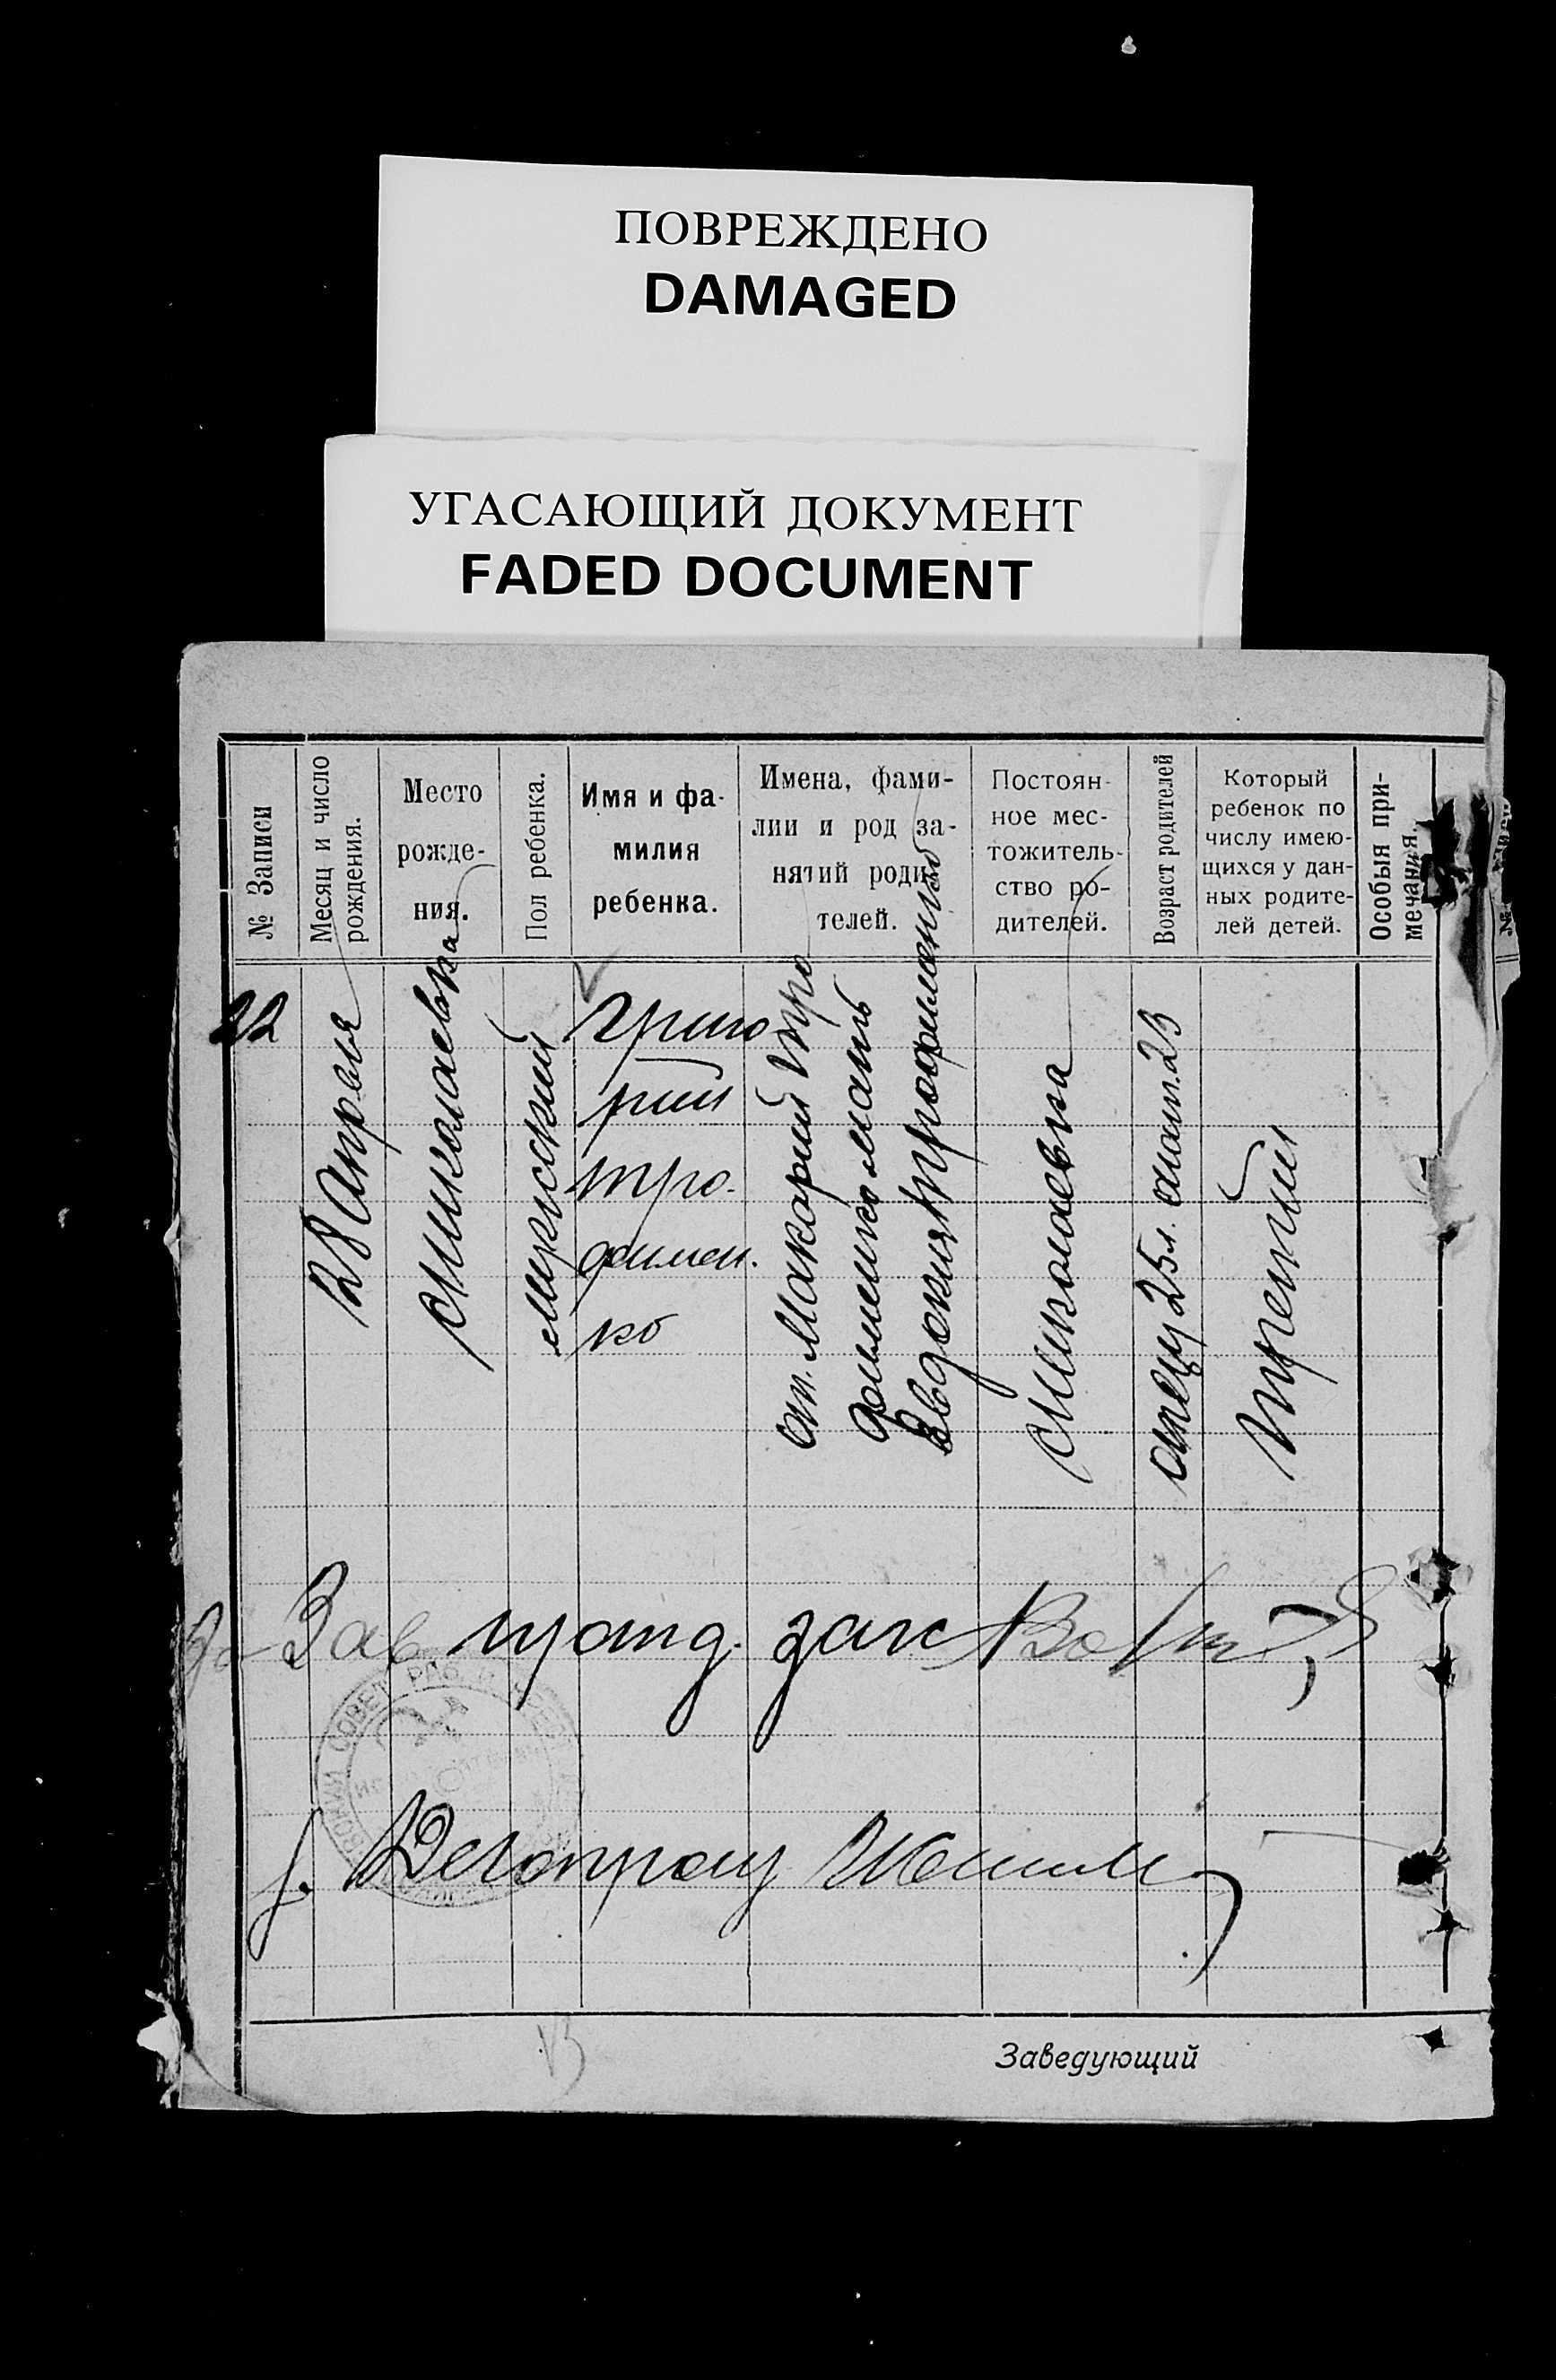 ПОВРЕЖДЕНО
DAMAGED
УГАСАЮЩИЙ ДОКУМЕНТ
FADED DOCUMENT
№ Записи
Месяц и число
рождения.
Место
рожде-
ния.
Пол ребенка.
Имя и фа-
милия
ребенка.
Имена, фами-
лии и род за-
нятий роди-
телей.
Постоян-
ное мес-
тожитель-
ство ро-
дителей.
Возраст родителей
Который
ребенок по
числу имею-
щихся у дан-
ных родите-
лей детей.
Особыя при-
мечания.
22
28 Апрелья
Николаевка
Мужский
Григо
рий
Тро-
фимен-
ко
от. Макарий Тро
фименко мать
Евдокия Трофименко
Николаевка
отец 25 л. мат. 23
Третий
За Зав. подотд. загс
Делопроиз
Заведующий